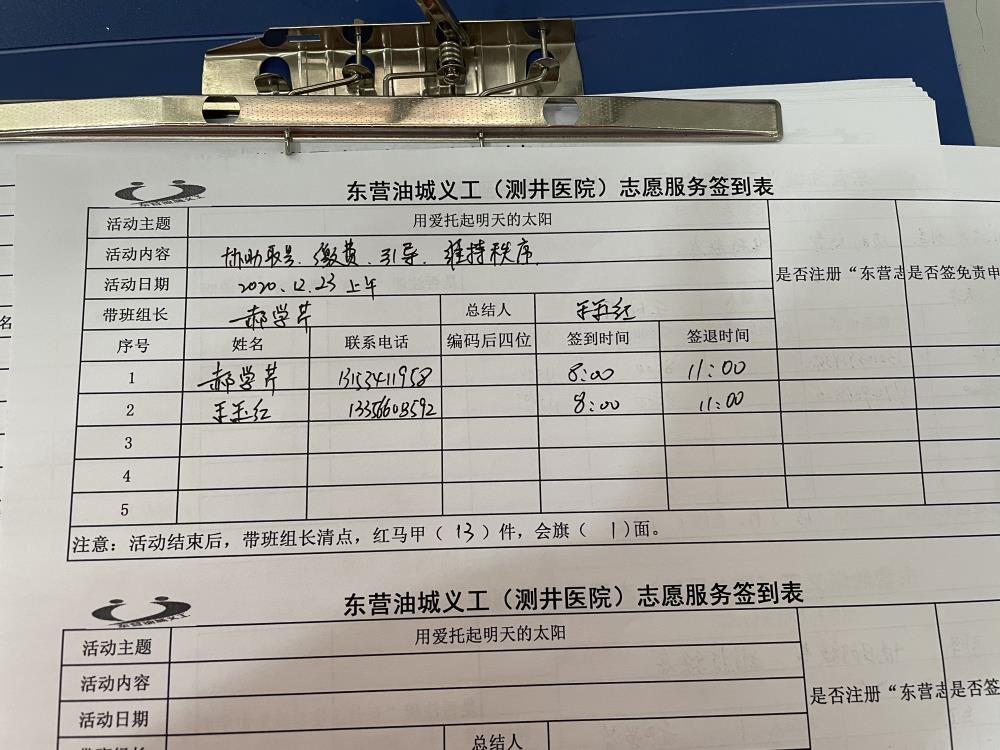 东营油城义工（测井医院）志愿服务签到表
活动主题 用爱托起明天的太阳
活动内容 协助取号、缴费、引导、维持秩序
活动日期 2020.12.23上午
是否注册“东营志 是否签免责申
带班组长 郝学芹 总结人 王玉红
序号 姓名 联系电话 编码后四位 签到时间 签退时间
1 郝学芹 13153411958 8:00 11:00
2 王玉红 8:00 11:00
3
4
5
注意：活动结束后，带班组长清点，红马甲（ 13 ）件，会旗（ 1 ）面。
东营油城义工（测井医院）志愿服务签到表
活动主题 用爱托起明天的太阳
活动内容
活动日期
是否注册“东营志 是否签
带班组长 总结人